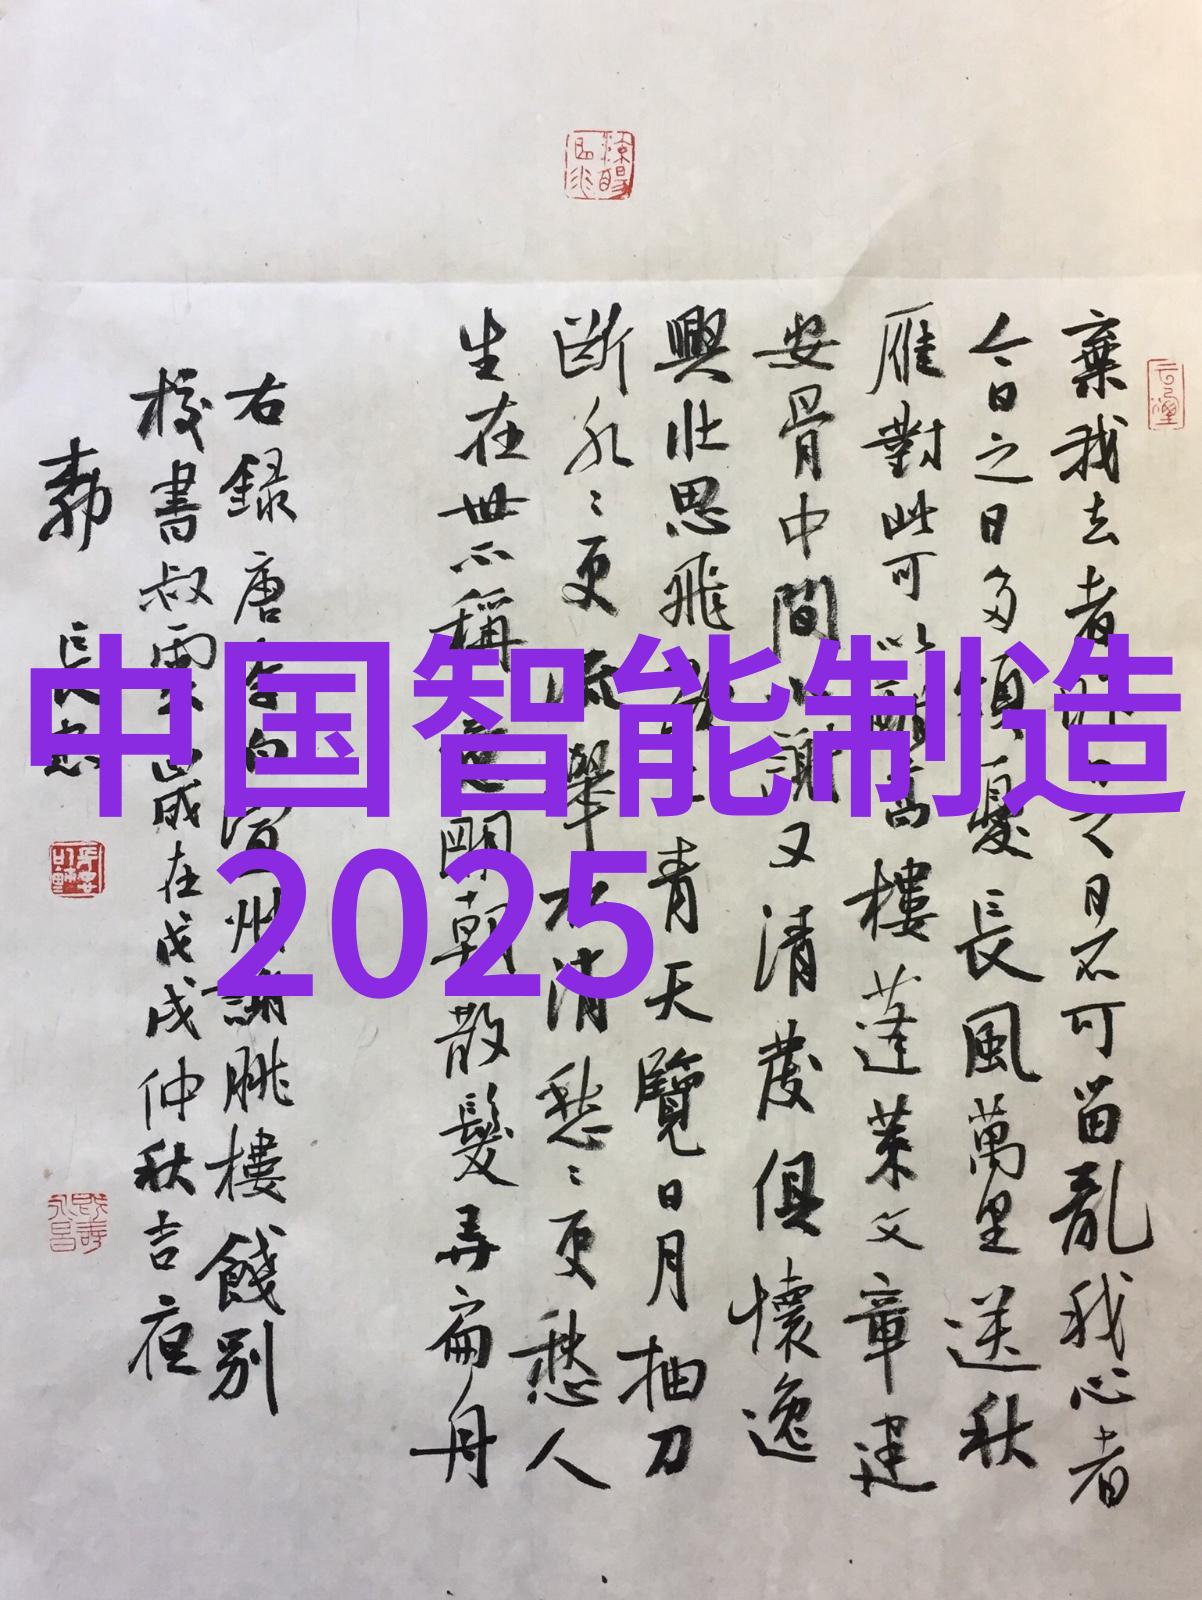 中国智能制造
2025
棄我去者昨日之日不可留亂我心者
今日之日多煩憂長風萬里送秋
雁對此可以酣高樓蓬萊文章建
安骨中間小謝又清發俱懷逸
興壯思飛欲上青天覽日月抽刀
斷水〻更流舉杯消愁〻更愁人
生在世不稱意明朝散髮弄扁舟
右録唐李白宣州謝朓樓餞別
校書叔雲歲在戊戌仲秋吉夜